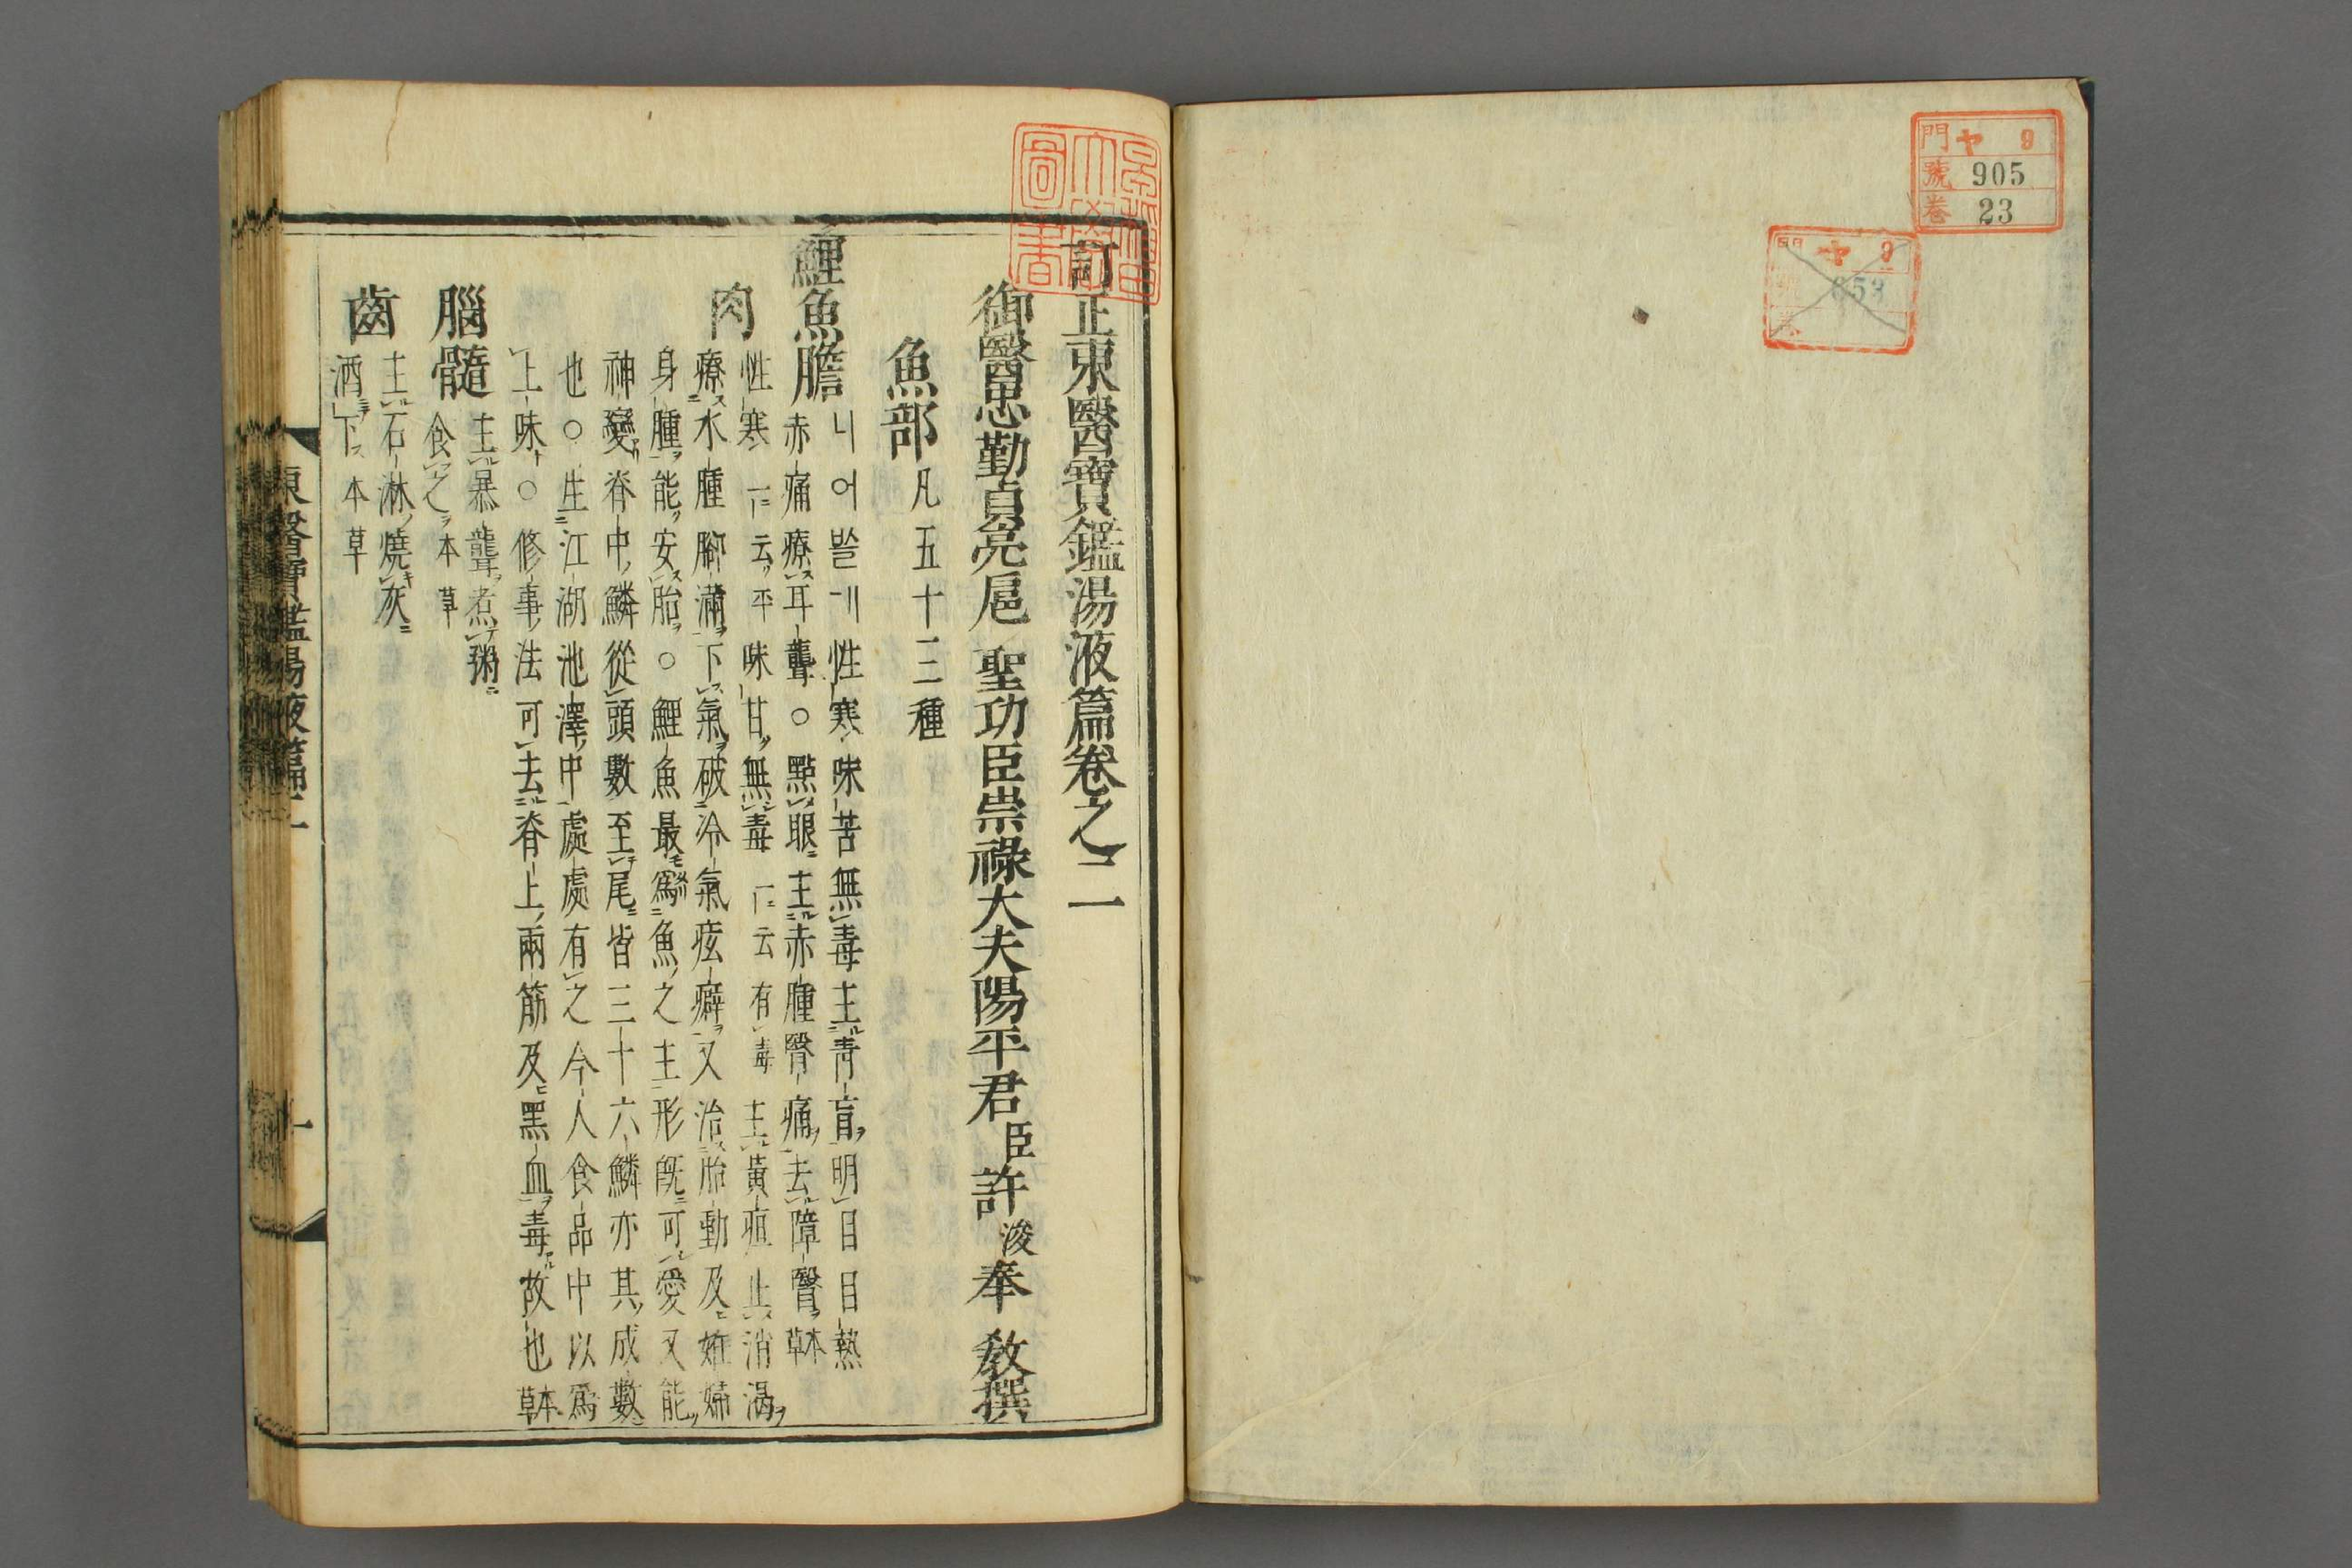 門 ヤ 9
號 905
卷 23
門 ヤ 9
653
訂正東醫寶鑑湯液篇卷之二
御醫忠勤貞亮扈 聖功臣崇祿大夫陽平君臣許浚奉 敎撰
魚部 凡五十三種
鯉魚膽 니어ᄡᅳᆯ게性寒味苦無毒主靑盲明目目熱
赤痛療耳聾○點眼主赤腫瞖痛去障瞖本草
肉 性寒一云平味甘無毒一云有毒主黃疸止消渴
療水腫脚滿下氣破冷氣痃癖又治胎動及姙婦
身腫能安胎○鯉魚最爲魚之主形旣可愛又能
神變脊中鱗從頭數至尾皆三十六鱗亦其成數
也○生江湖池澤中處處有之今人食品中以爲
上味○修事法可去脊上兩筋及黑血毒故也本草
腦髓 主暴聾煮粥
食之本草
齒 主石淋燒灰
酒下本草
東醫寶鑑湯液篇二
一